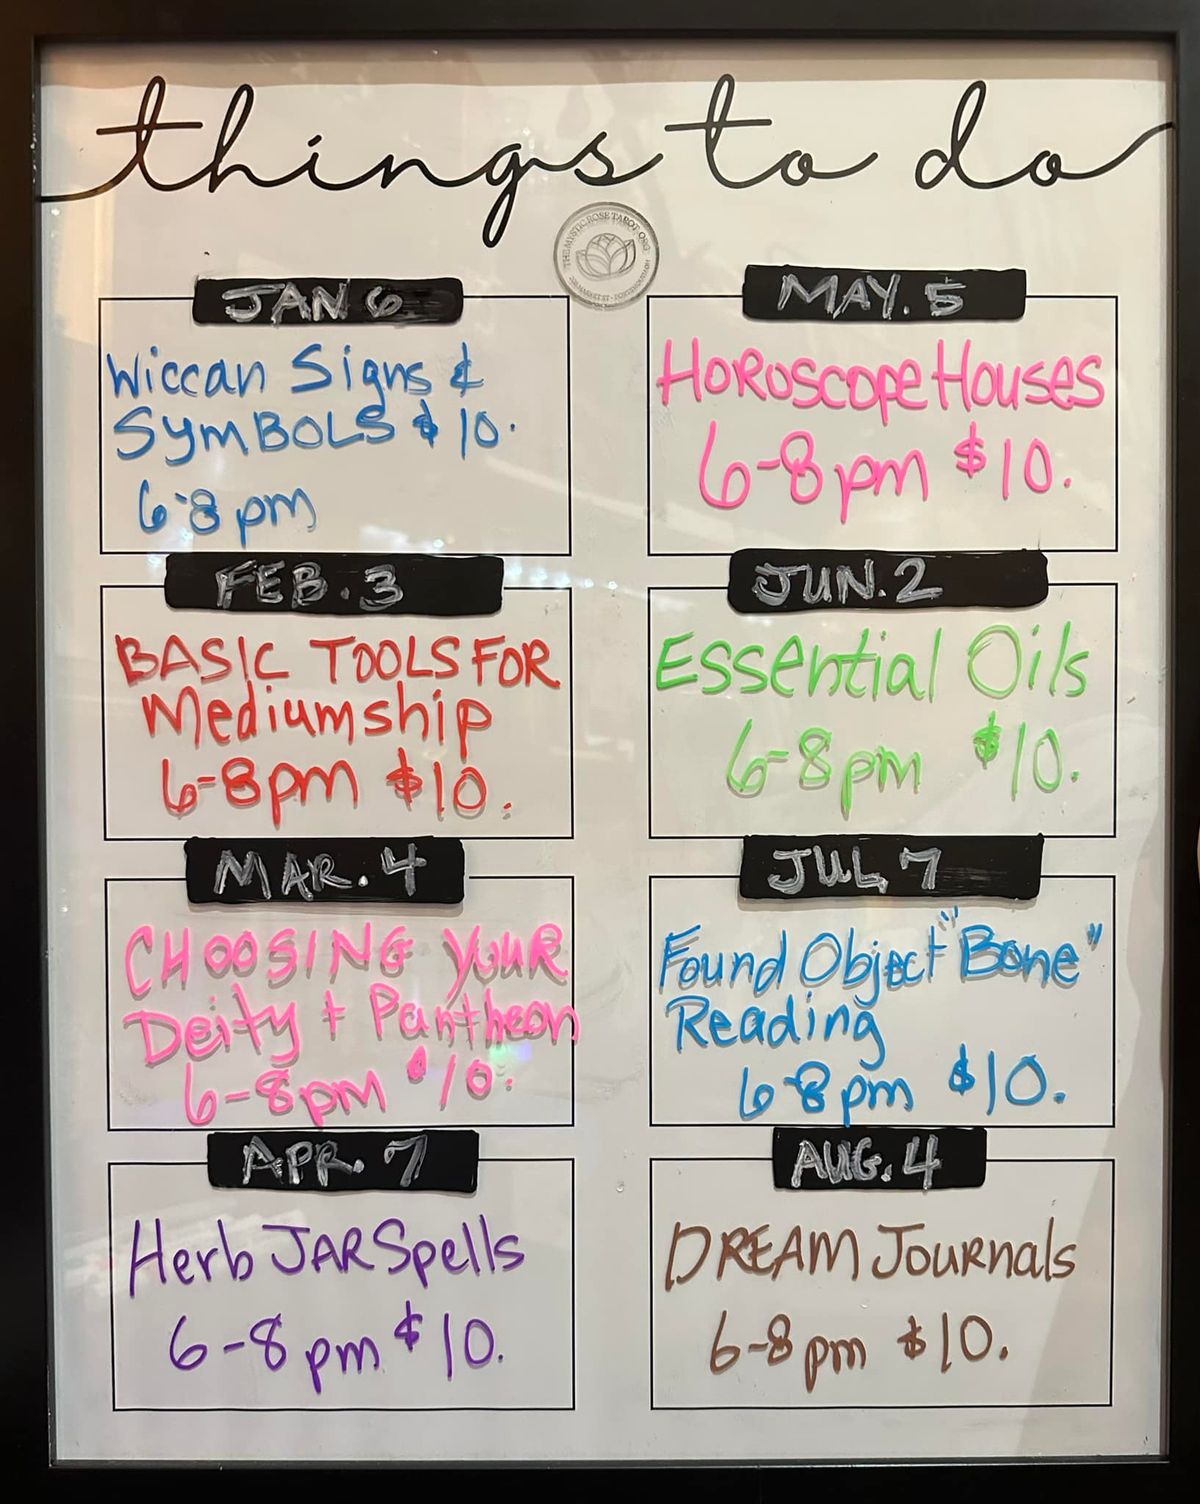 things to do
THE MYSTIC ROSE TAROT.ORG
JAN 6
Wiccan Signs &
SYMBOLS $10.
6-8pm
FEB. 3
BASIC TOOLS FOR
Mediumship
6-8pm $10.
MAR. 4
CHOOSING YOUR
Deity + Pantheon
6-8pm $10.
APR. 7
Herb JAR Spells
6-8pm $10.
MAY. 5
HOROSCOPE HOUSES
6-8pm $10.
JUN. 2
Essential Oils
6-8pm $10.
JUL 7
Found Object "Bone"
Reading
6-8pm $10.
AUG. 4
DREAM JOURNALS
6-8pm $10.